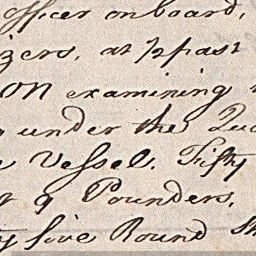 officer on board,
izers, at ½ past
on examining
under the Qua
e Vessel. Fifty
9 Pounders,
ty five Round Sh